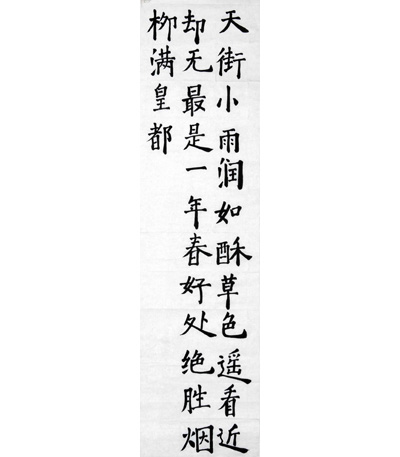 天街小雨润如酥草色遥看近
却无最是一年春好处绝胜烟
柳满皇都